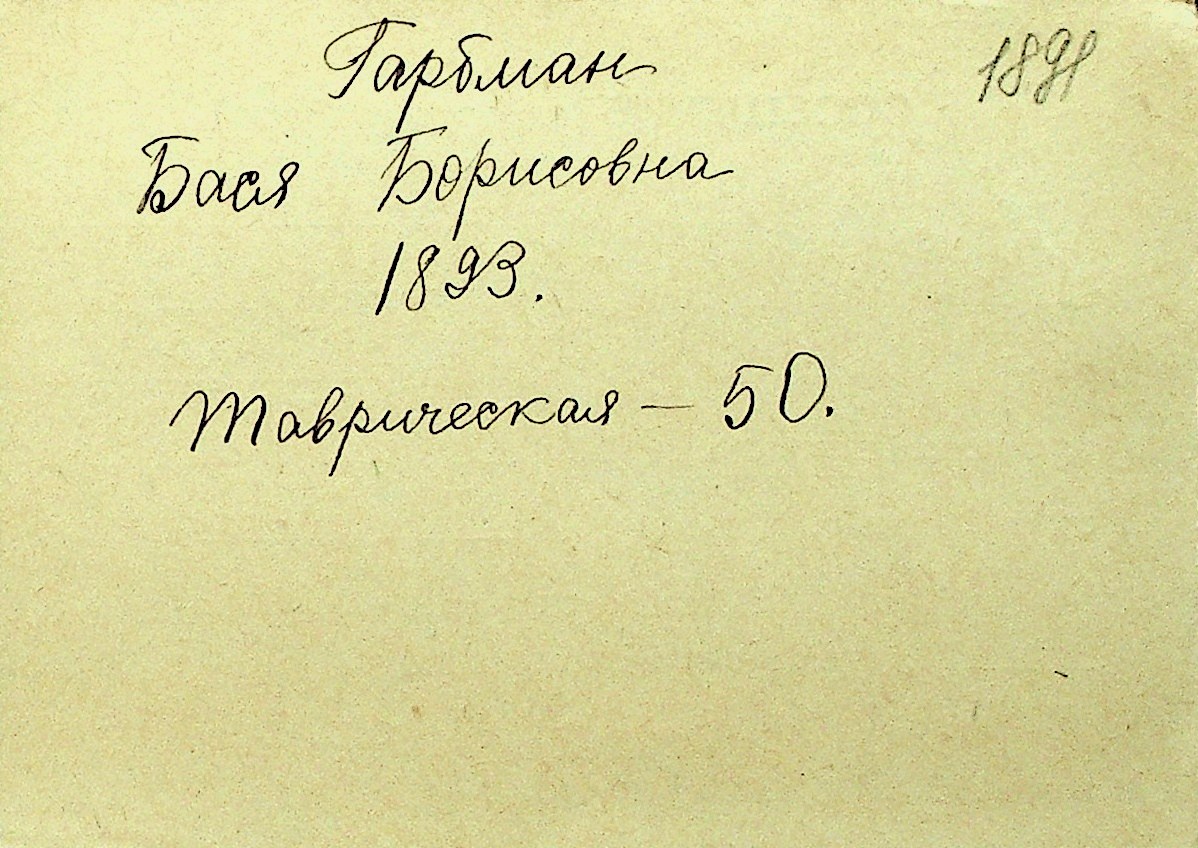 Гарбман
1891
Бася Борисовна
1893.
Таврическая — 50.